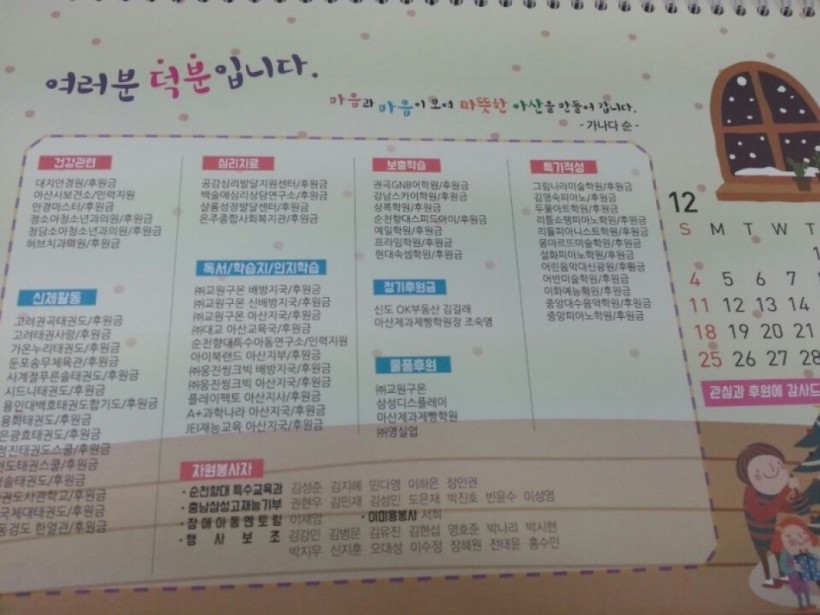 여러분 덕분입니다.
마음과 마음이 모여 따뜻한 아산을 만들어 갑니다.
- 가나다 순 -
건강관련
대지안경원/후원금
아산시보건소/인력지원
안경마스터/후원금
정소아청소년과의원/후원금
청담소아청소년과의원/후원금
허브치과의원/후원금
신체활동
고려권곡태권도/후원금
고려태권사랑/후원금
가온누리태권도/후원금
둔포숭무체육관/후원금
사계절푸른솔태권도/후원금
시드니태권도/후원금
용인대백호태권도합기도/후원금
용화태권도/후원금
은광효태권도/후원금
정진태권도스쿨/후원금
현도태권스쿨/후원금
술태권도/후원금
권도사관학교/후원금
국체대태권도/후원금
동검도 한얼관/후원금
심리치료
공감심리발달지원센터/후원금
백술애심리상담연구소/후원금
샬롬성장발달센터/후원금
온주종합사회복지관/후원금
독서/학습지/인지학습
㈜교원구몬 배방지국/후원금
㈜교원구몬 신배방지국/후원금
㈜교원구몬 아산지국/후원금
㈜대교 아산교육국/후원금
순천향대특수아동연구소/인력지원
아이북랜드 아산지부/후원금
㈜웅진씽크빅 배방지국/후원금
㈜웅진씽크빅 아산지국/후원금
플레이팩토 아산지사/후원금
A+과학나라 아산지국/후원금
JEI재능교육 아산지국/후원금
보충학습
권곡GNB어학원/후원금
강남스카이학원/후원금
상록학원/후원금
순천향대스피드아이/후원금
예일학원/후원금
프라임학원/후원금
현대속셈학원/후원금
정기후원금
신도 OK부동산 김길래
아산제과제빵학원장 조숙영
물품후원
㈜교원구몬
삼성디스플레이
아산제과제빵학원
㈜영실업
특기적성
그림나라미술학원/후원금
김영숙피아노/후원금
두울아트학원/후원금
리틀쇼팽피아노학원/후원금
리틀피아니스트학원/후원금
몽마르뜨미술학원/후원금
설화피아노학원/후원금
어린음악대신광원/후원금
어반미술학원/후원금
이화예능학원/후원금
중앙대수음악학원/후원금
중앙피아노학원/후원금
자원봉사자
· 순천향대 특수교육과 김성준 김지혜 민다영 이하은 장인권
· 충남삼성고재능기부 권현우 김민재 김성민 도은재 박진호 빈윤수 이성영
· 장애아동멘토링 이재암 · 이미용봉사 서희
· 행사보조 김강민 김병문 김유진 김현섭 명호준 박나리 박시현
박지우 신지훈 오대성 이수정 장혜원 전태윤 홍수민
12
S M T W T
1
4 5 6 7 8
11 12 13 14
18 19 20 21
25 26 27 28
관심과 후원에 감사드